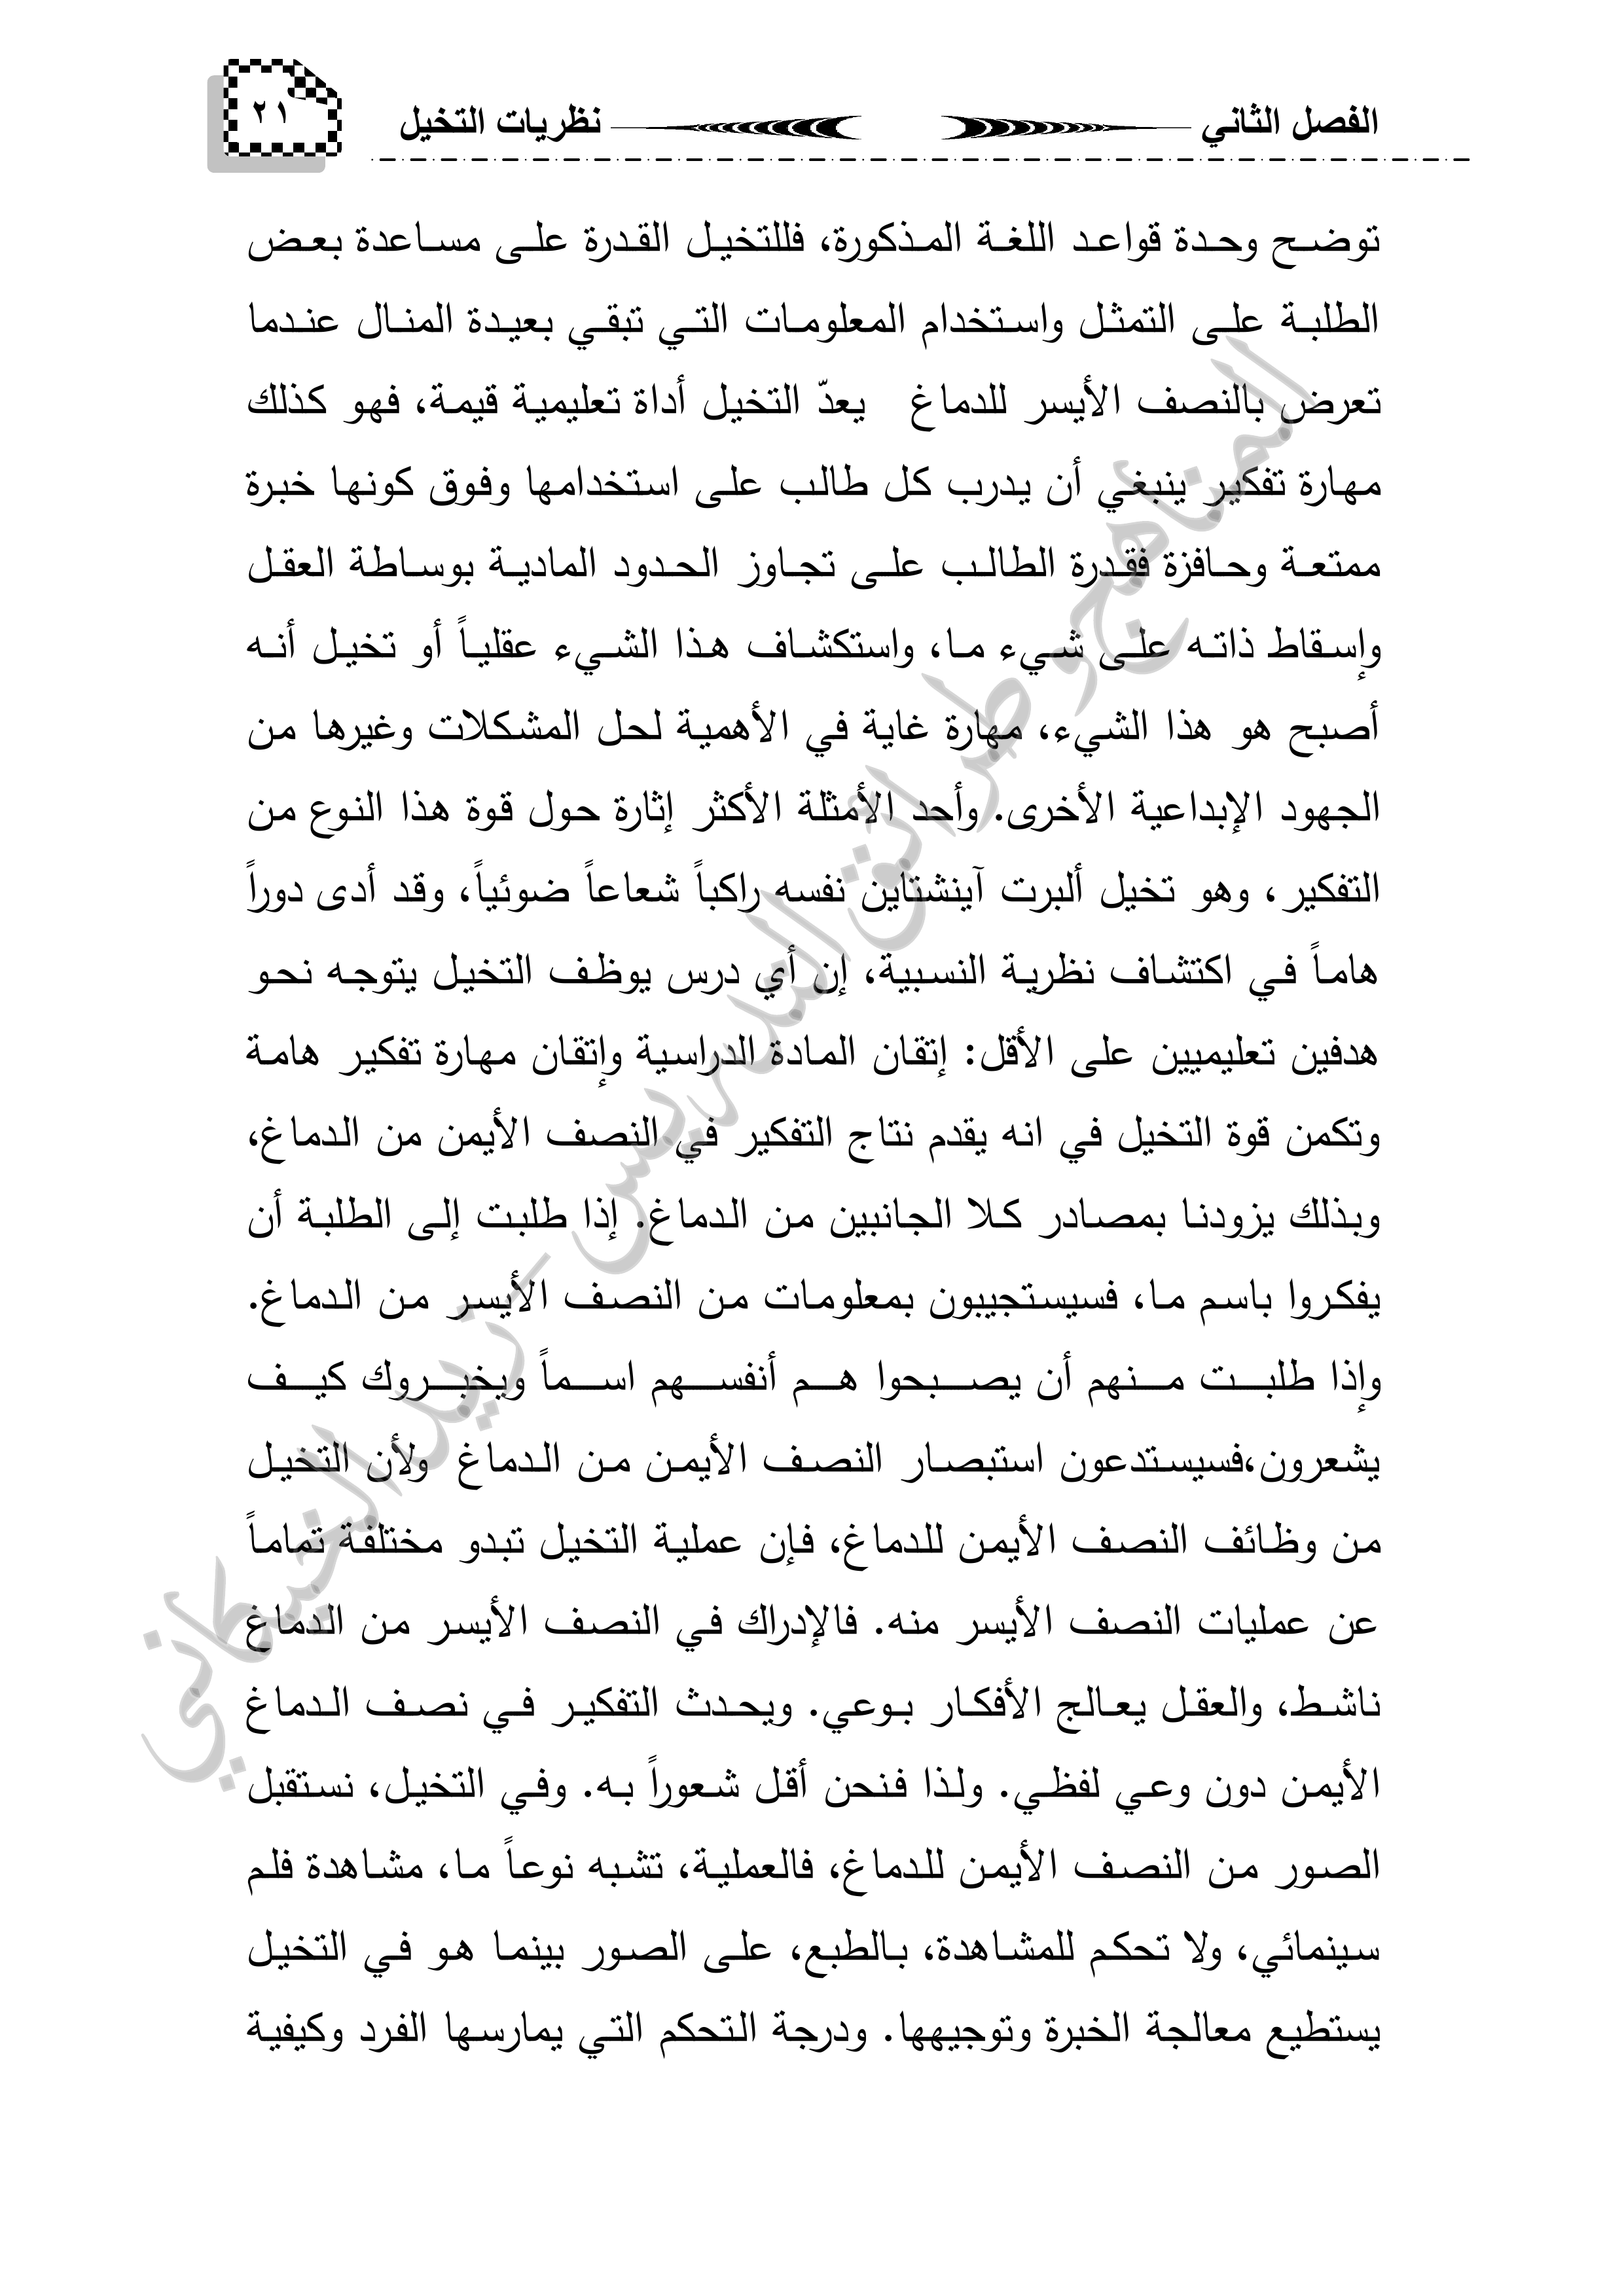 الفصل الثاني نظريات التخيل ٢١
توضح وحدة قواعد اللغة المذكورة، فللتخيل القدرة على مساعدة بعض
الطلبة على التمثل واستخدام المعلومات التي تبقي بعيدة المنال عندما
تعرض بالنصف الأيسر للدماغ يعدّ التخيل أداة تعليمية قيمة، فهو كذلك
مهارة تفكير ينبغي أن يدرب كل طالب على استخدامها وفوق كونها خبرة
ممتعة وحافزة فقدرة الطالب على تجاوز الحدود المادية بوساطة العقل
وإسقاط ذاته على شيء ما، واستكشاف هذا الشيء عقلياً أو تخيل أنه
أصبح هو هذا الشيء، مهارة غاية في الأهمية لحل المشكلات وغيرها من
الجهود الإبداعية الأخرى. وأحد الأمثلة الأكثر إثارة حول قوة هذا النوع من
التفكير، وهو تخيل ألبرت آينشتاين نفسه راكباً شعاعاً ضوئياً، وقد أدى دوراً
هاماً في اكتشاف نظرية النسبية، إن أي درس يوظف التخيل يتوجه نحو
هدفين تعليميين على الأقل: إتقان المادة الدراسية وإتقان مهارة تفكير هامة
وتكمن قوة التخيل في انه يقدم نتاج التفكير في النصف الأيمن من الدماغ،
وبذلك يزودنا بمصادر كلا الجانبين من الدماغ. إذا طلبت إلى الطلبة أن
يفكروا باسم ما، فسيستجيبون بمعلومات من النصف الأيسر من الدماغ.
وإذا طلبت منهم أن يصبحوا هم أنفسهم اسماً ويخبروك كيف
يشعرون،فسيستدعون استبصار النصف الأيمن من الدماغ ولأن التخيل
من وظائف النصف الأيمن للدماغ، فإن عملية التخيل تبدو مختلفة تماماً
عن عمليات النصف الأيسر منه. فالإدراك في النصف الأيسر من الدماغ
ناشط، والعقل يعالج الأفكار بوعي. ويحدث التفكير في نصف الدماغ
الأيمن دون وعي لفظي. ولذا فنحن أقل شعوراً به. وفي التخيل، نستقبل
الصور من النصف الأيمن للدماغ، فالعملية، تشبه نوعاً ما، مشاهدة فلم
سينمائي، ولا تحكم للمشاهدة، بالطبع، على الصور بينما هو في التخيل
يستطيع معالجة الخبرة وتوجيهها. ودرجة التحكم التي يمارسها الفرد وكيفية
المناهج وطرائق التدريس - زيد الخيكاني